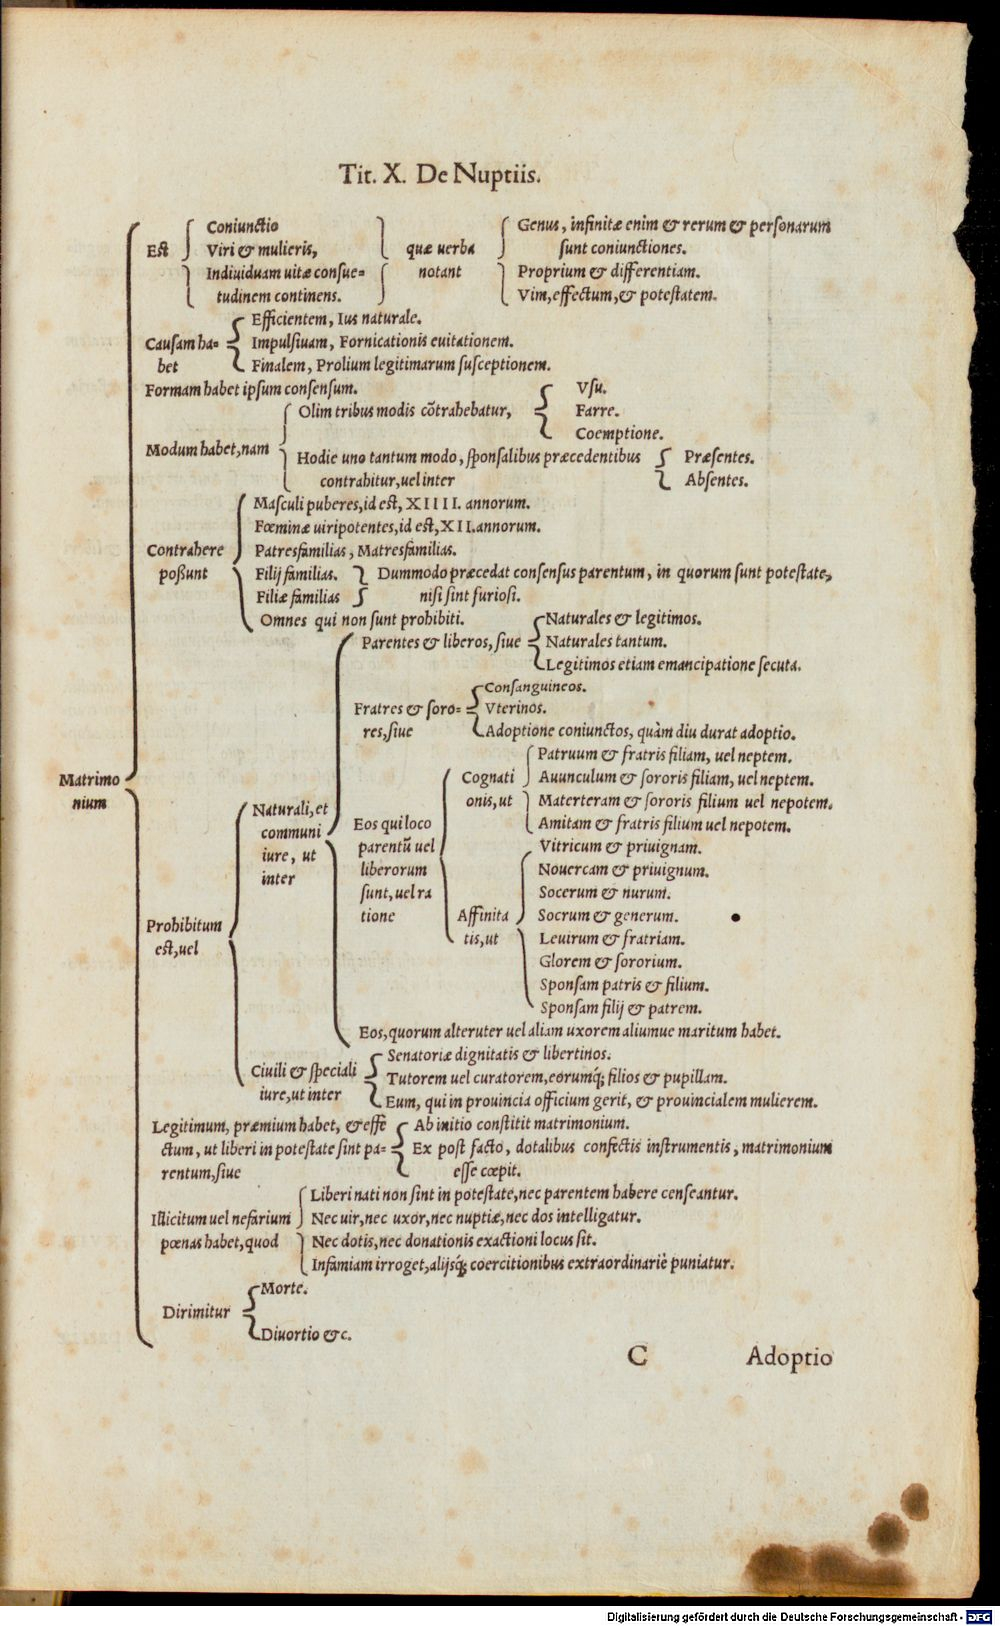 Tit. X. De Nuptiis.
Est
Coniunctio
Viri & mulieris,
Indiuiduam uitæ consue-
tudinem continens.
quæ uerba
notant
Genus, infinitæ enim & rerum & personarum
sunt coniunctiones.
Proprium & differentiam.
Vim, effectum, & potestatem.
Causam ha-
bet
Efficientem, Ius naturale.
Impulsiuam, Fornicationis euitationem.
Finalem, Prolium legitimarum susceptionem.
Formam habet ipsum consensum.
Modum habet, nam
Olim tribus modis cõtrahebatur,
Vsu.
Farre.
Coemptione.
Hodie uno tantum modo, sponsalibus præcedentibus
contrahitur, uel inter
Præsentes.
Absentes.
Contrahere
possunt
Masculi puberes, id est, XIIII. annorum.
Fœminæ uiripotentes, id est, XII. annorum.
Patresfamilias, Matresfamilias.
Filij familias.
Filiæ familias
Dummodo præcedat consensus parentum, in quorum sunt potestate,
nisi sint furiosi.
Omnes qui non sunt prohibiti.
Matrimo
nium
Prohibitum
est, uel
Naturali, et
communi
iure, ut
inter
Parentes & liberos, siue
Naturales & legitimos.
Naturales tantum.
Legitimos etiam emancipatione secuta.
Fratres & soro-
res, siue
Consanguineos.
Vterinos.
Adoptione coniunctos, quàm diu durat adoptio.
Eos qui loco
parentũ uel
liberorum
sunt, uel ra
tione
Cognati
onis, ut
Patruum & fratris filiam, uel neptem.
Auunculum & sororis filiam, uel neptem.
Materteram & sororis filium uel nepotem.
Amitam & fratris filium uel nepotem.
Affinita
tis, ut
Vitricum & priuignam.
Nouercam & priuignum.
Socerum & nurum.
Socrum & generum.
Leuirum & fratriam.
Glorem & sororium.
Sponsam patris & filium.
Sponsam filij & patrem.
Eos, quorum alteruter uel aliam uxorem aliumue maritum habet.
Ciuili & speciali
iure, ut inter
Senatoriæ dignitatis & libertinos.
Tutorem uel curatorem, eorumq́; filios & pupillam.
Eum, qui in prouincia officium gerit, & prouincialem mulierem.
Legitimum, præmium habet, & effe
ctum, ut liberi in potestate sint pa-
rentum, siue
Ab initio constitit matrimonium.
Ex post facto, dotalibus confectis instrumentis, matrimonium
esse cœpit.
Illicitum uel nefarium
pœnas habet, quod
Liberi nati non sint in potestate, nec parentem habere censeantur.
Nec uir, nec uxor, nec nuptiæ, nec dos intelligatur.
Nec dotis, nec donationis exactioni locus sit.
Infamiam irroget, alijsq́; coercitionibus extraordinariè puniatur.
Dirimitur
Morte.
Diuortio &c.
C Adoptio
Digitalisierung gefördert durch die Deutsche Forschungsgemeinschaft - DFG